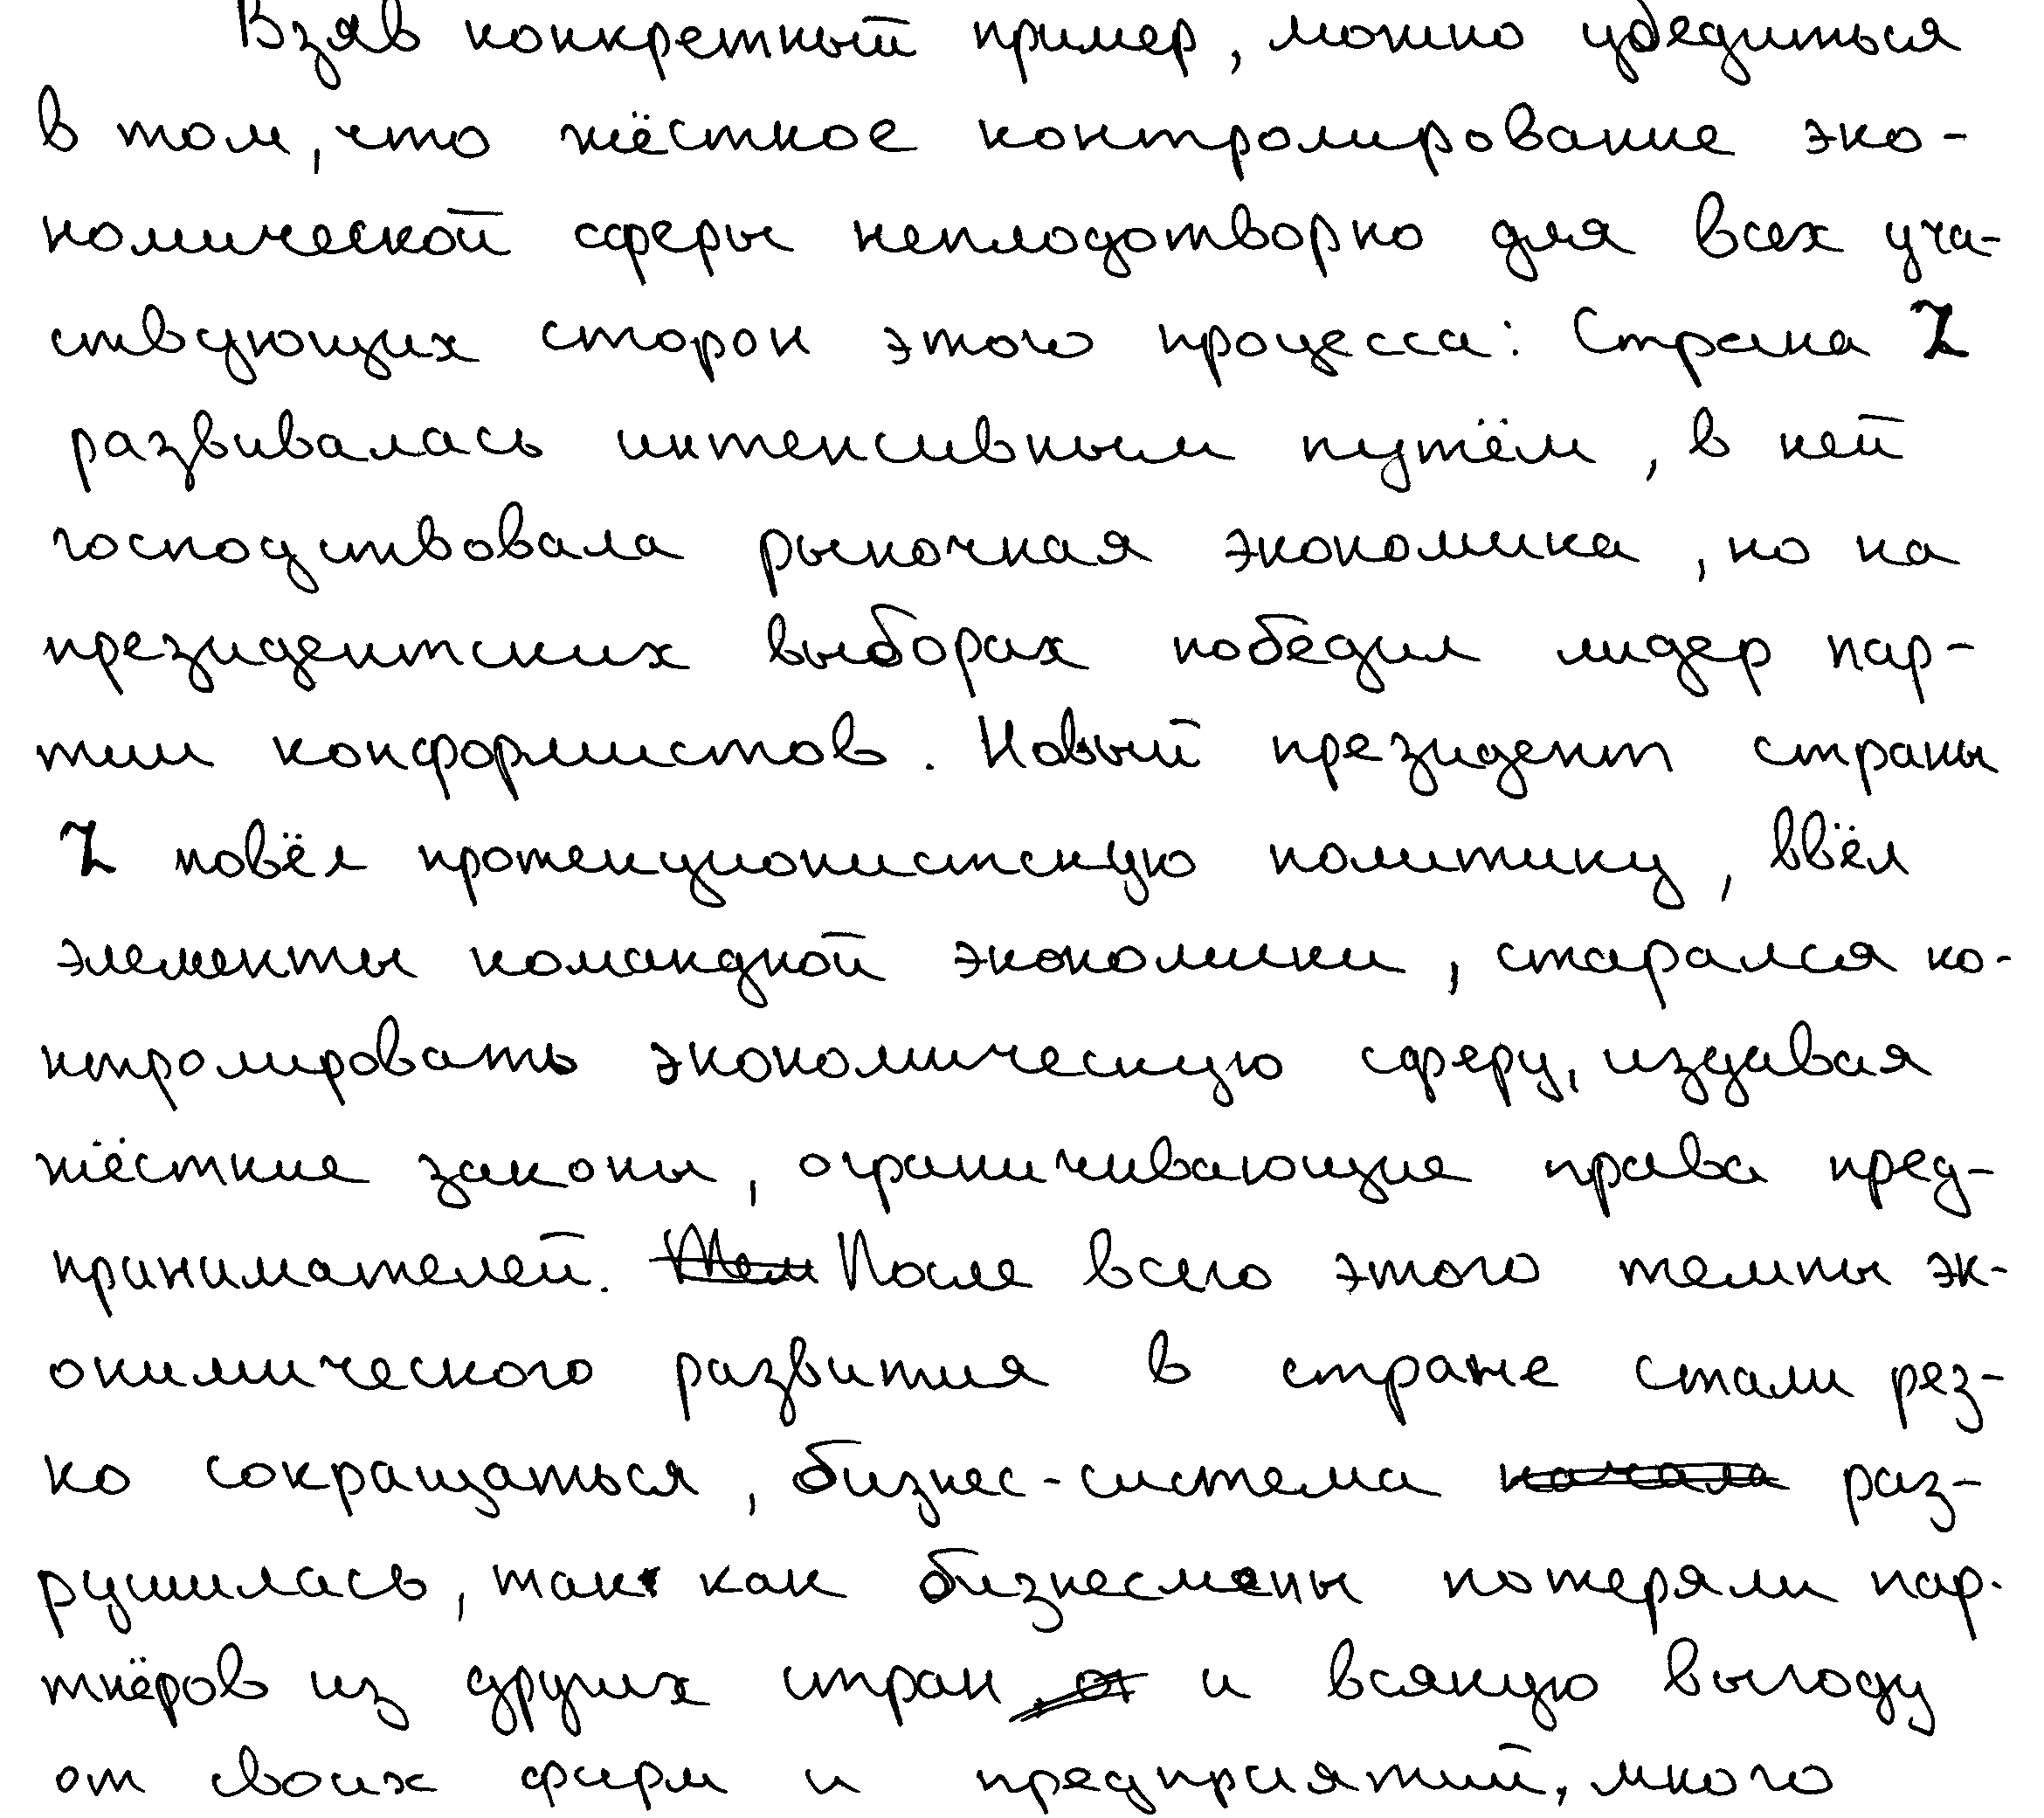 Взяв конкретный пример, можно убедиться
в том, что жёсткое контролирование эко-
номической сферы неплодотворно для всех уча-
ствующих сторон этого процесса: Страна Z
развивалась интенсивным путём, в ней
господствовала рыночная экономика, но на
президентских выборах победил лидер пар-
тии конформистов. Новый президент страны
Z повёл протекционистскую политику, ввёл
элементы командной экономики, старался ко-
нтролировать экономическую сферу, издавая
жёсткие законы, ограничивающие права пред-
принимателей. После всего этого темпы эк-
окимического развития в стране стали рез-
ко сокращаться, бизнес-система начала раз-
рушилась, так как бизнесмены потеряли пар-
тнёров из других стран и всякую выгоду
от своих фирм и предприятий, много